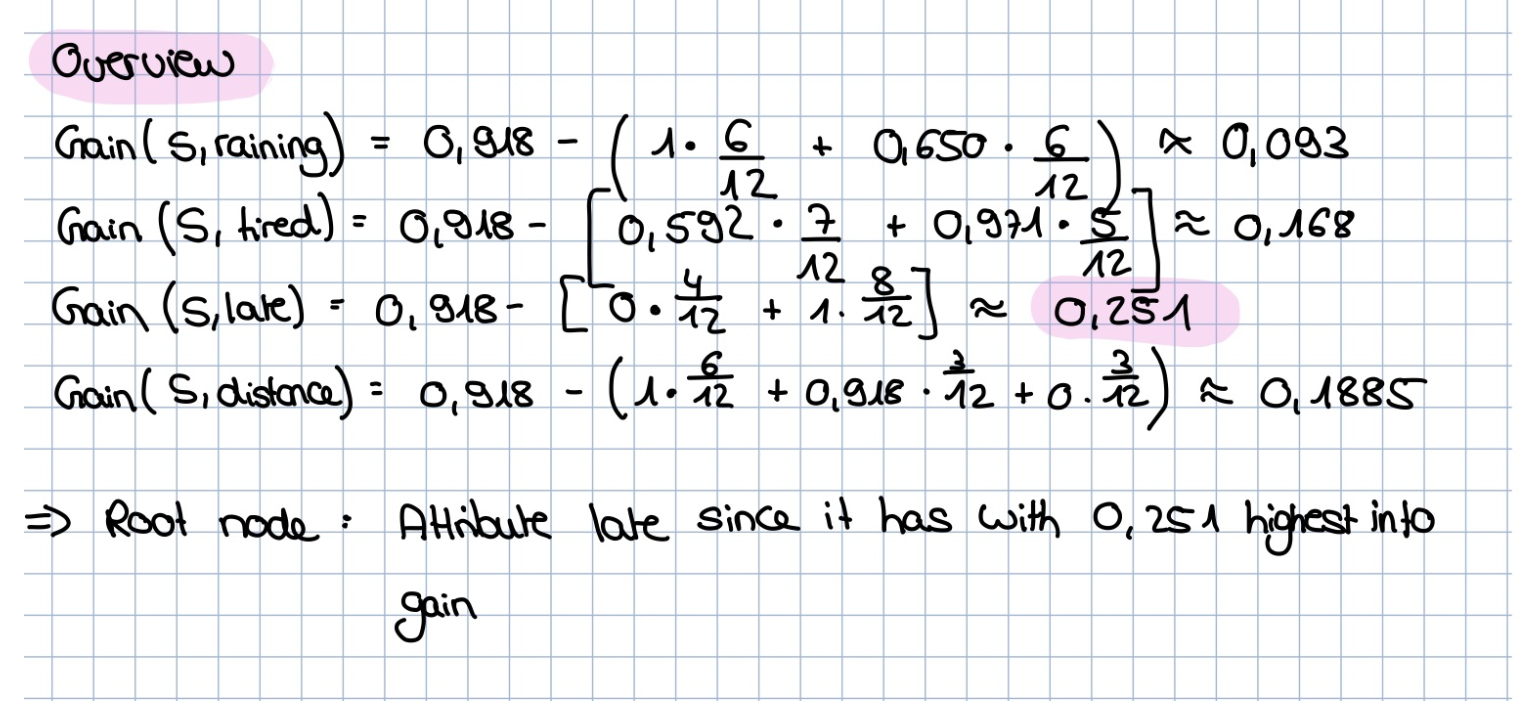 Overview
Gain(S,raining) = 0,918 - (1 · 6/12 + 0,650 · 6/12) ≈ 0,093
Gain (S, tired) = 0,918 - [0,592 · 7/12 + 0,971 · 5/12] ≈ 0,168
Gain (S,late) = 0,918 - [0 · 4/12 + 1 · 8/12] ≈ 0,251
Gain(S,distance) = 0,918 - (1 · 6/12 + 0,918 · 3/12 + 0 · 3/12) ≈ 0,1885
=> Root node : Attribute late since it has with 0,251 highest info
gain